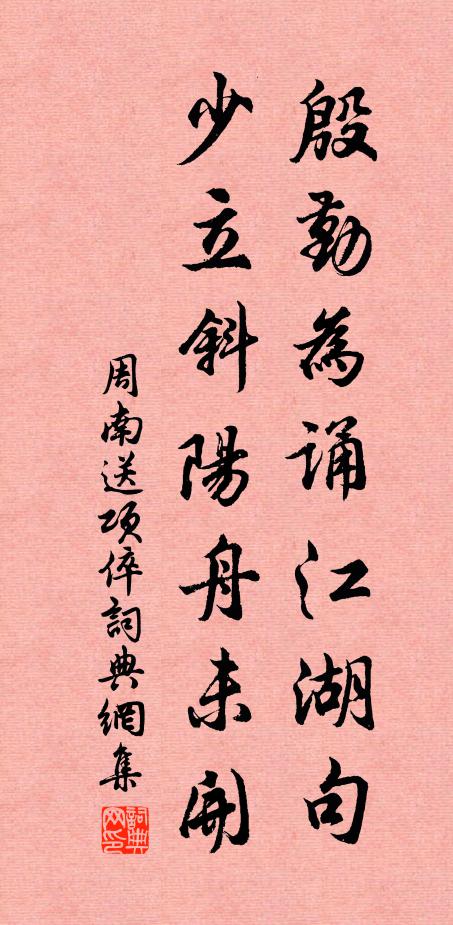 殷勤為誦江湖句
少立斜陽舟未開
周南送項倅詞典網集
詞典网印